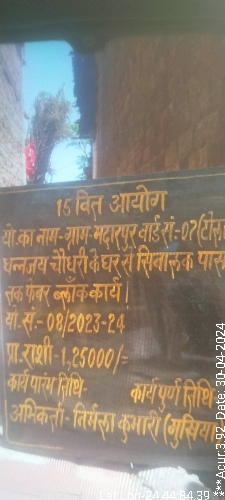 15 वित्त आयोग
यो.का नाम-ग्राम मदारपुर वार्ड सं.-07(टोला
धनन्जय चौधरी के घर से शिवालक पास
तक फेबर ब्लॉक कार्य।
यो.सं.-08/2023-24
प्रा.राशी-1,25000/=
कार्य प्रारम तिथि-
कार्य पुर्ण तिथि-
अभिकर्ता- निर्मला कुमारी (मुखिया
Acur.3.92 Date: 30-04-2024